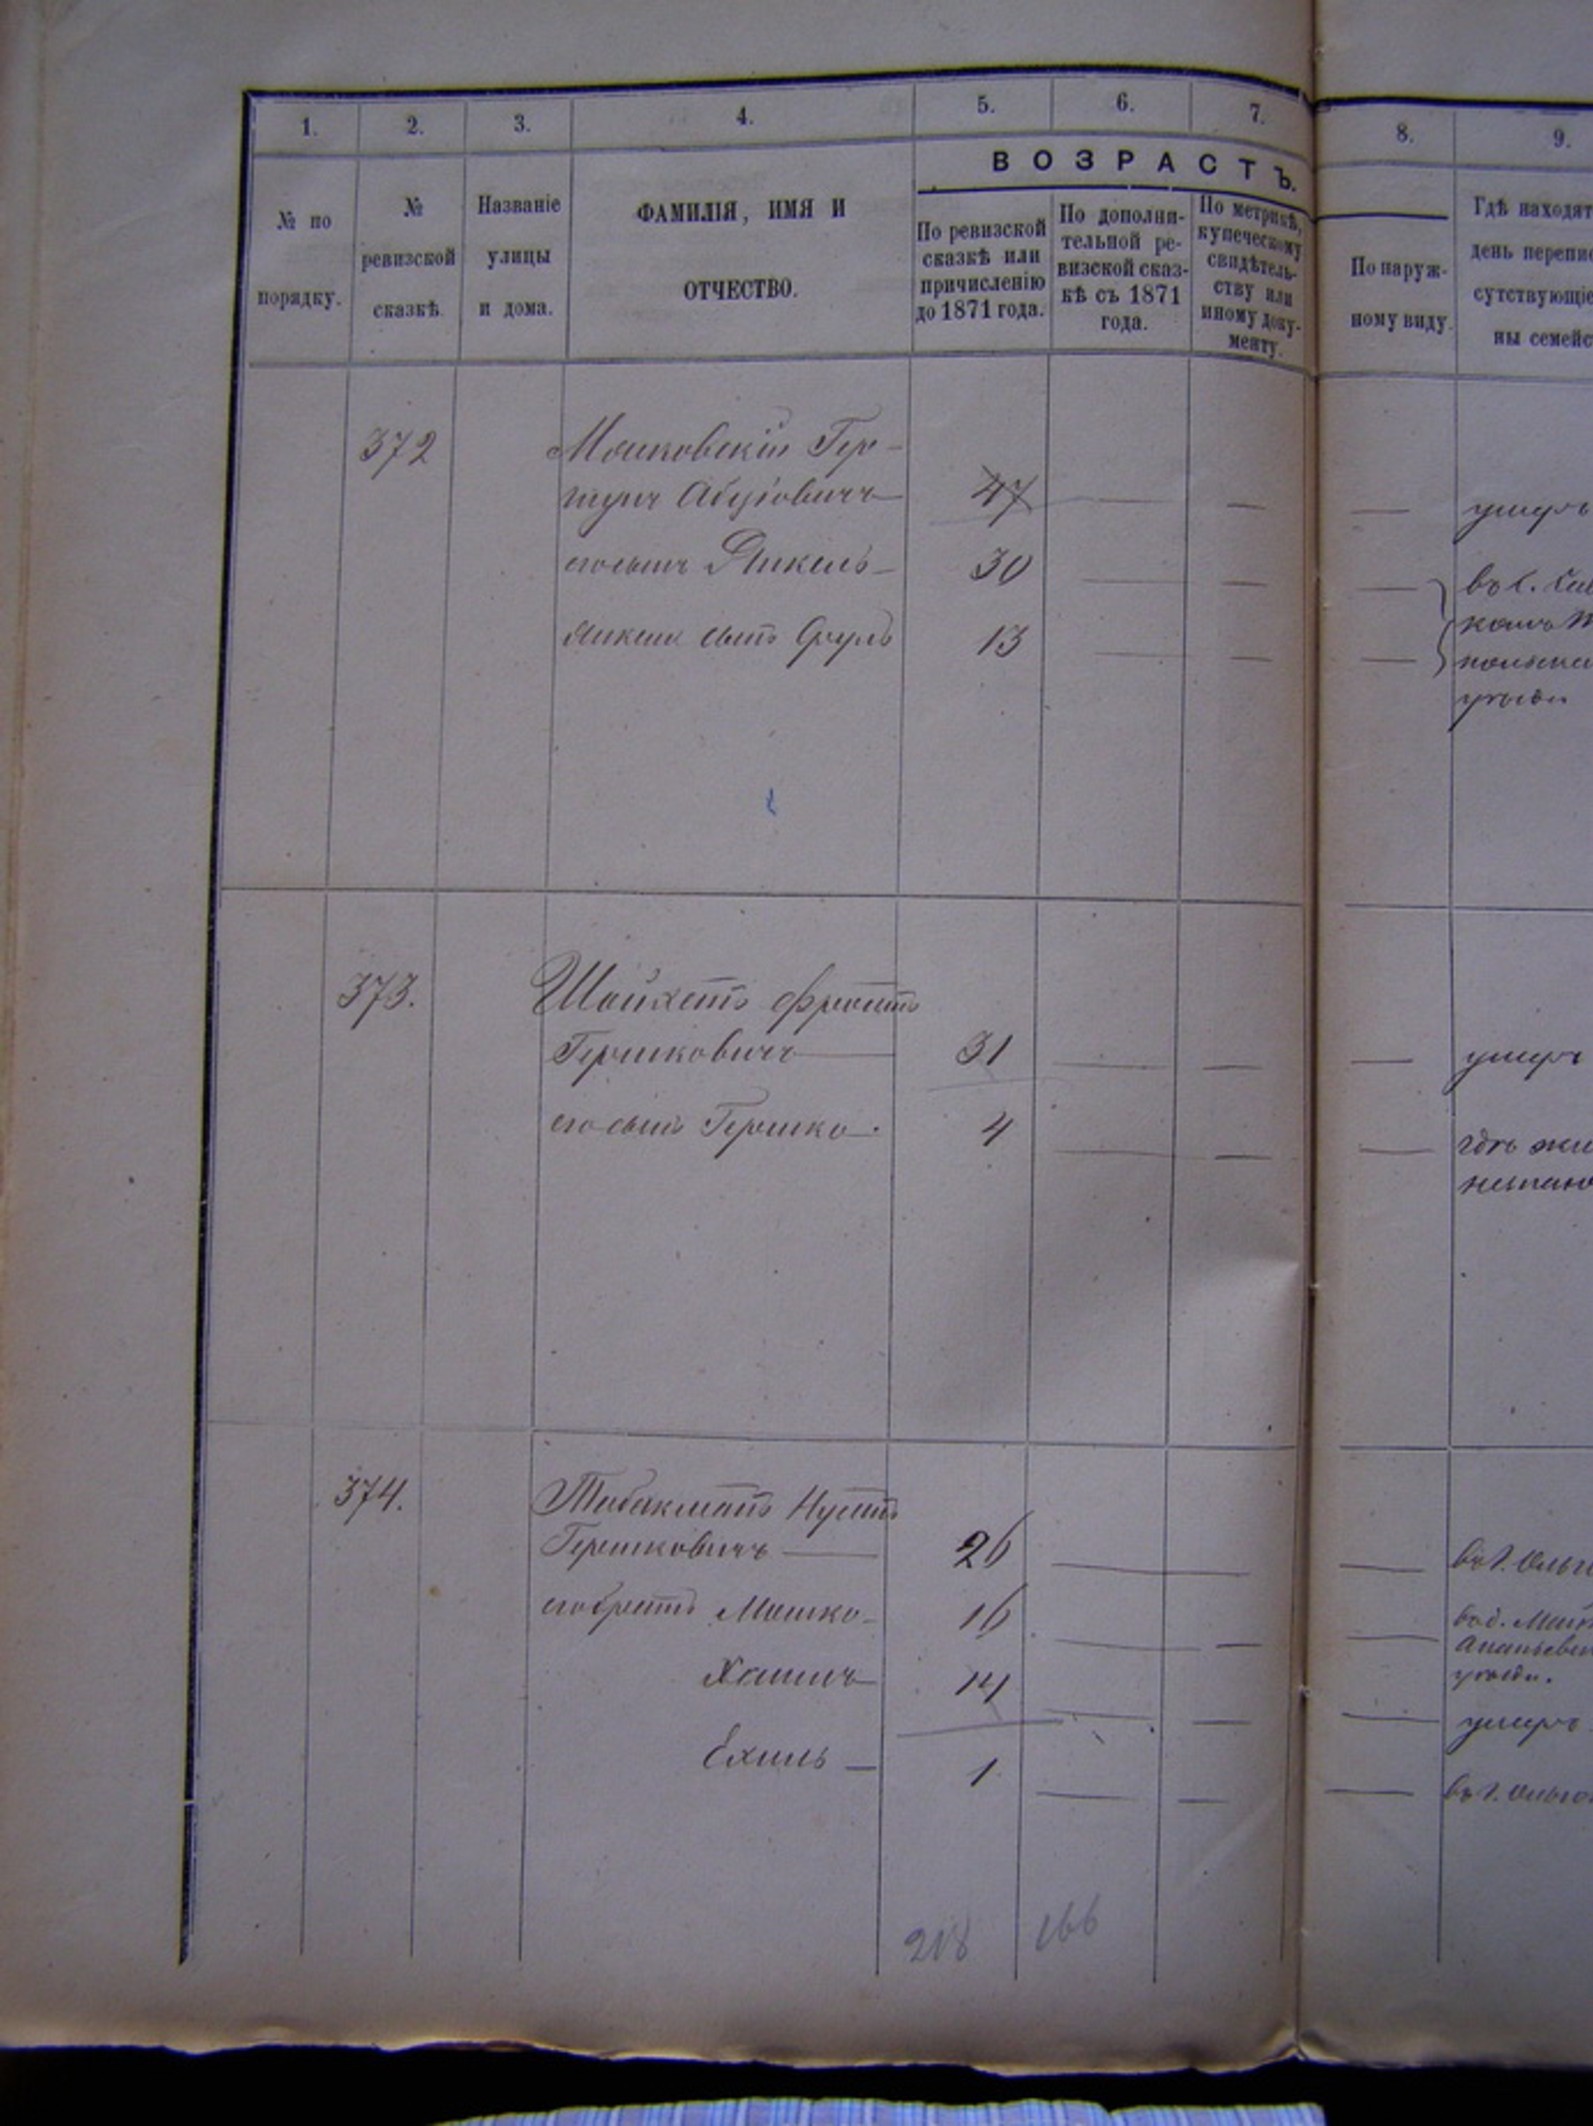 1. 2. 3. 4. 5. 6. 7. 8. 9.
ВОЗРАСТЪ.
№ по порядку.
№ ревизской сказкѣ.
Названіе улицы и дома.
ФАМИЛІЯ, ИМЯ И ОТЧЕСТВО.
По ревизской сказкѣ или причисленію до 1871 года.
По дополни-тельной ре-визской сказ-кѣ съ 1871 года.
По метрикѣ, купеческому свидѣтель-ству или иному доку-менту.
По наруж-ному виду.
Гдѣ находят
день перепис
сутствующіе
ны семейс
372 Гер-
47 — — — умеръ
его сынъ Янкель — 30 — — —
Янкеля сынъ Сруль 13 — — —
уѣзда
373. Шойхетъ
Гершковичъ — 31 — — — умеръ
его сынъ Гершко. 4 — — — гдѣ жи
374. Табакманъ
Гершковичъ — 26 — — въ г. Ольг
его братъ Мошко — 16 — — —
Ананьевск
уѣзда.
Хаимъ 14 — — — умеръ
Ехиль — 1 — — — въ г. Ольго
218 166